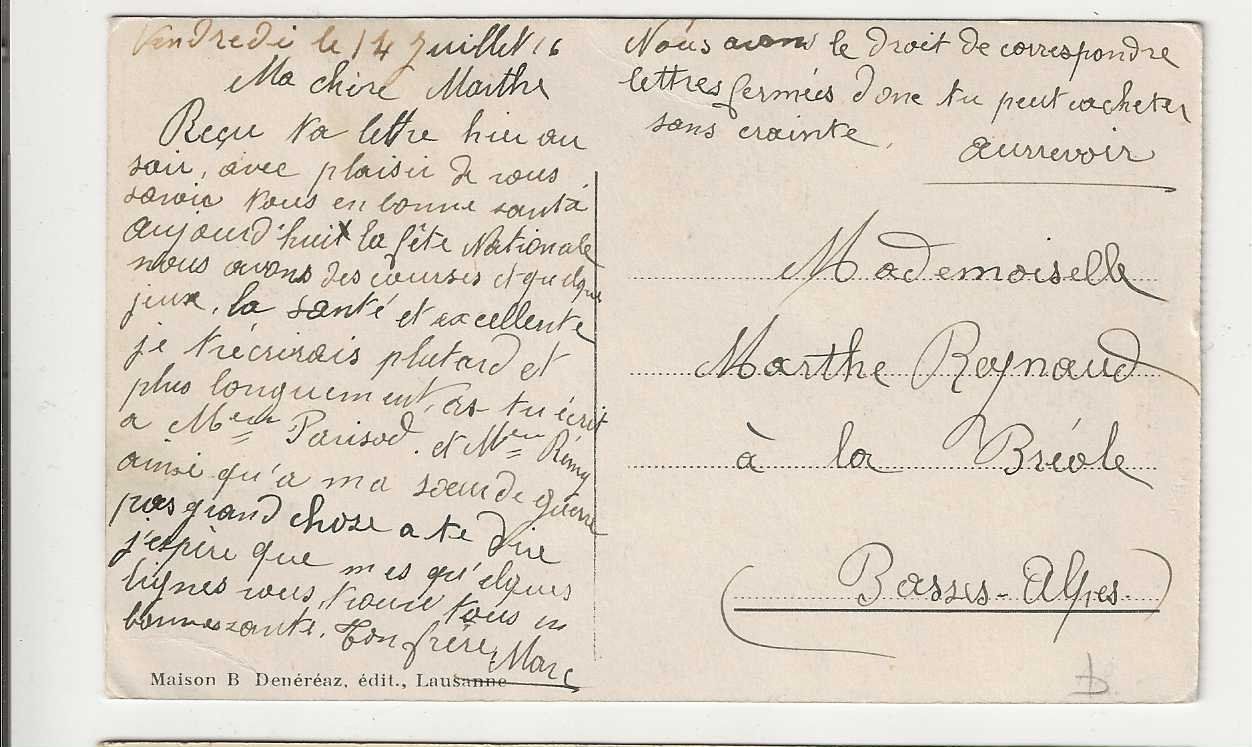 Vendredi le 14 Juillet 16
Ma chère Marthe
Reçu ta lettre hier au
soir, avec plaisir de vous
savoir tous en bonne santé
aujourd'hui la fête Nationale
nous avons des courses et quelque
jeux, la santé et excellente
je t'écrirais plutard et
plus longuement, as-tu écrit
a Mme Parisod. et Mme Rémy
ainsi qu'a ma sœur de guerre
pas grand choze a te dire
j'espère que mes qu'elques
lignes vous trouve tous en
bonnes zanté. Ton frère,
Marc
Maison B Denéréaz, édit., Lausanne
Nous avons le droit de correspondre
lettres fermées donc tu peut cacheter
sans crainte.
aurrevoir
Mademoiselle
Marthe Reynaud
à la Bréole
(Basses-Alpes.)